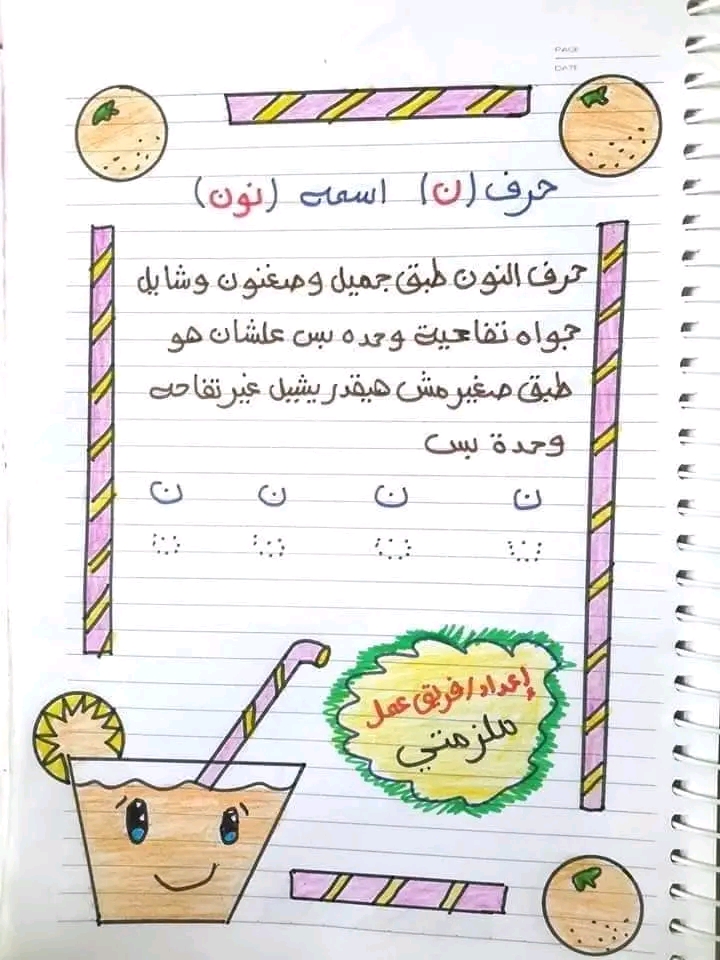 PAGE
DATE
حرف (ن) اسمه (نون)
حرف النون طبق جميل وصغنون وشايل
جواه تفاحية وحده بس علشان هو
طبق صغير مش هيقدر يشيل غير تفاحه
وحدة بس
ن ن ن ن
ن ن ن ن
إعداد/فريق عمل
ملزمتي